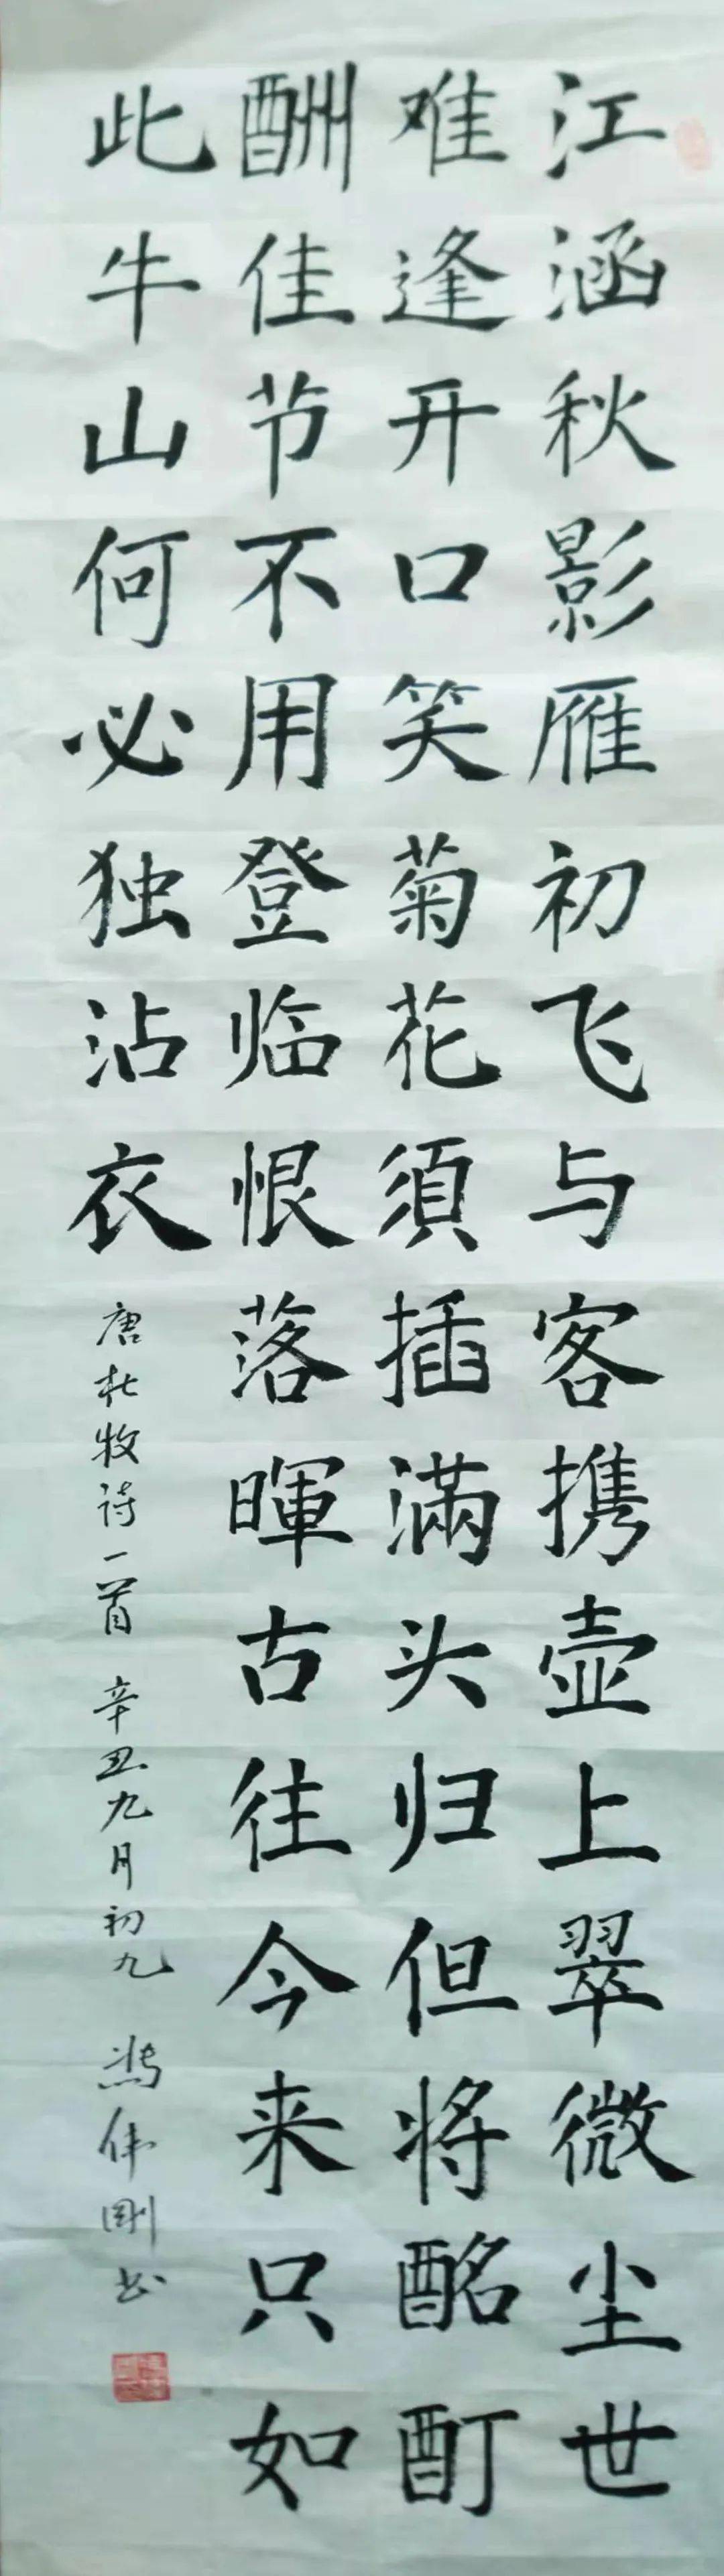 江涵秋影雁初飞与客携壶上翠微尘世
难逢开口笑菊花須插滿头归但将酩酊
酬佳节不用登临恨落暉古往今来只如
此牛山何必独沾衣
唐杜牧诗一首 辛丑九月初九 伟剛书